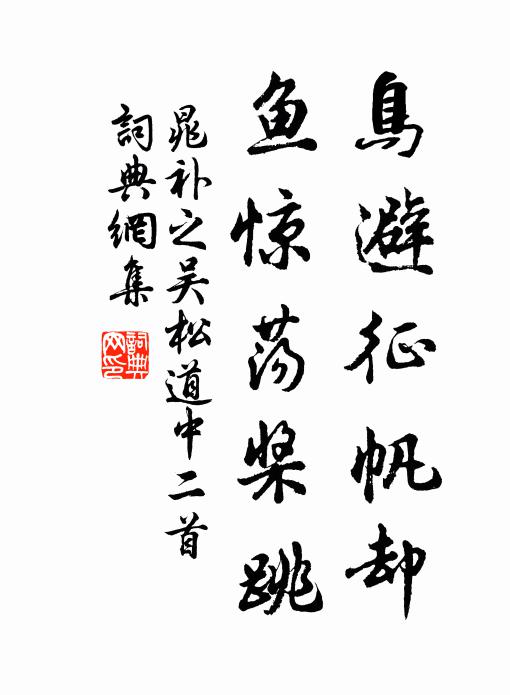 鳥避征帆却
鱼惊荡桨跳
晁补之吴松道中二首
詞典網集
詞典
网印